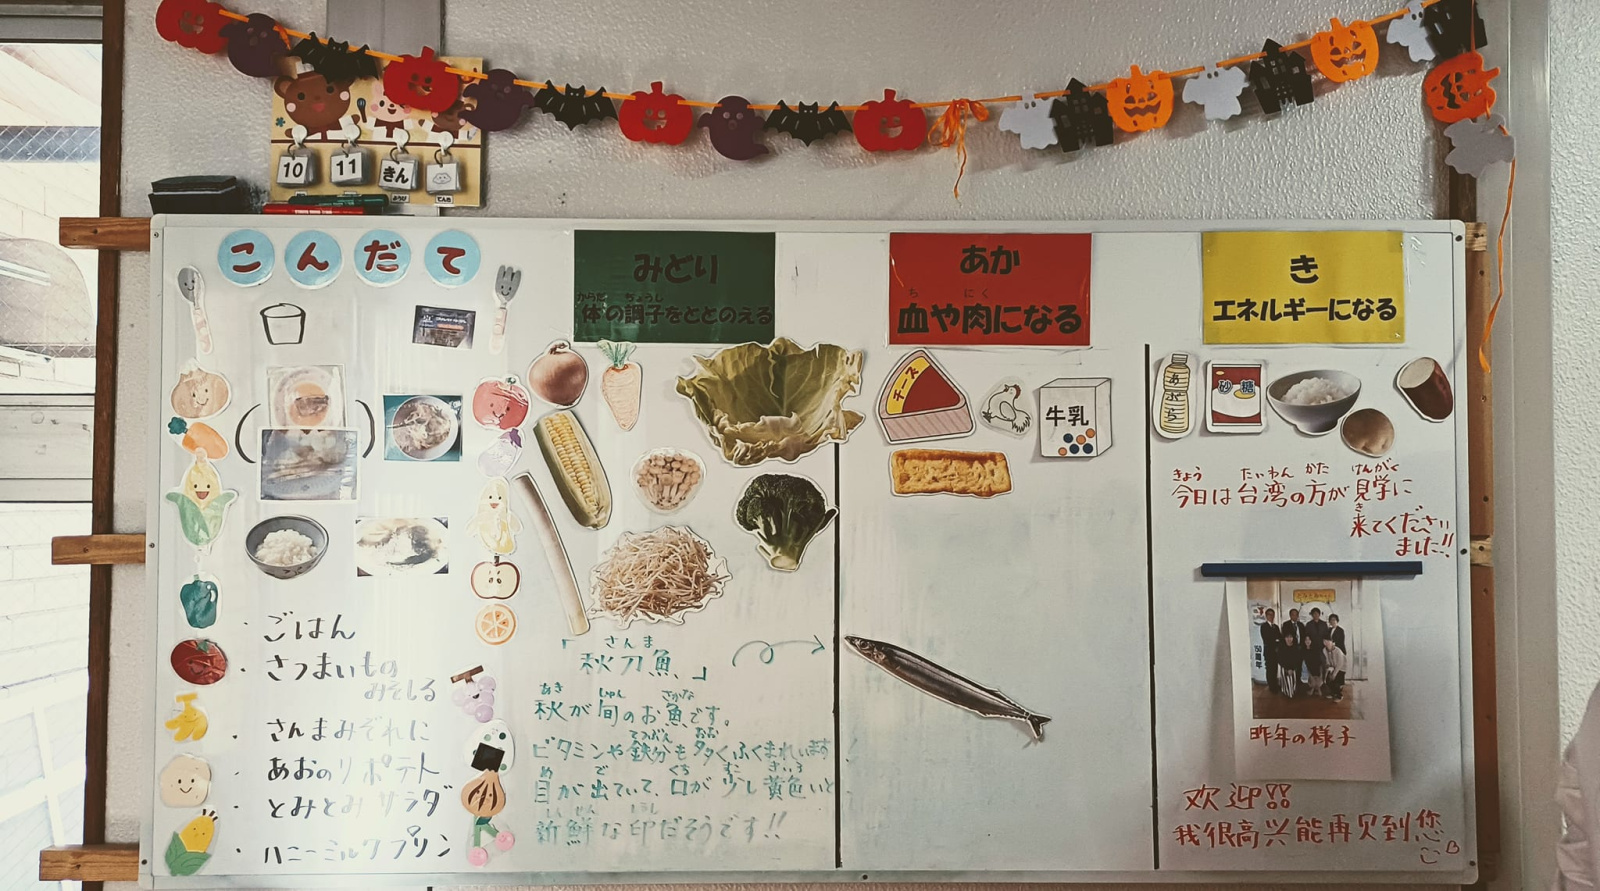 10
11
きん
ようび
てんき
こんだて
みどり
からだ ちょうし
体の調子をととのえる
あか
ち にく
血や肉になる
き
エネルギーになる
チーズ
牛乳
あぶら
砂糖
きょう たいわん かた けんがく
今日は台湾の方が見学に
き
来てくださり
ました!!
150周年
昨年の様子
欢迎
我很高兴能再次到您
・ごはん
・さつまいもの
みそしる
・さんまみぞれに
・あおのりポテト
・とみとみサラダ
・ハニーミルクプリン
さんま
「秋刀魚」
あき しゅん さかな
秋が旬のお魚です。
てつぶん おお
ビタミンや鉄分も多くふくまれいます!
め で くち すこ きいろ
目が出ていて、口が少し黄色いと
しんせん しるし
新鮮な印だそうです!!